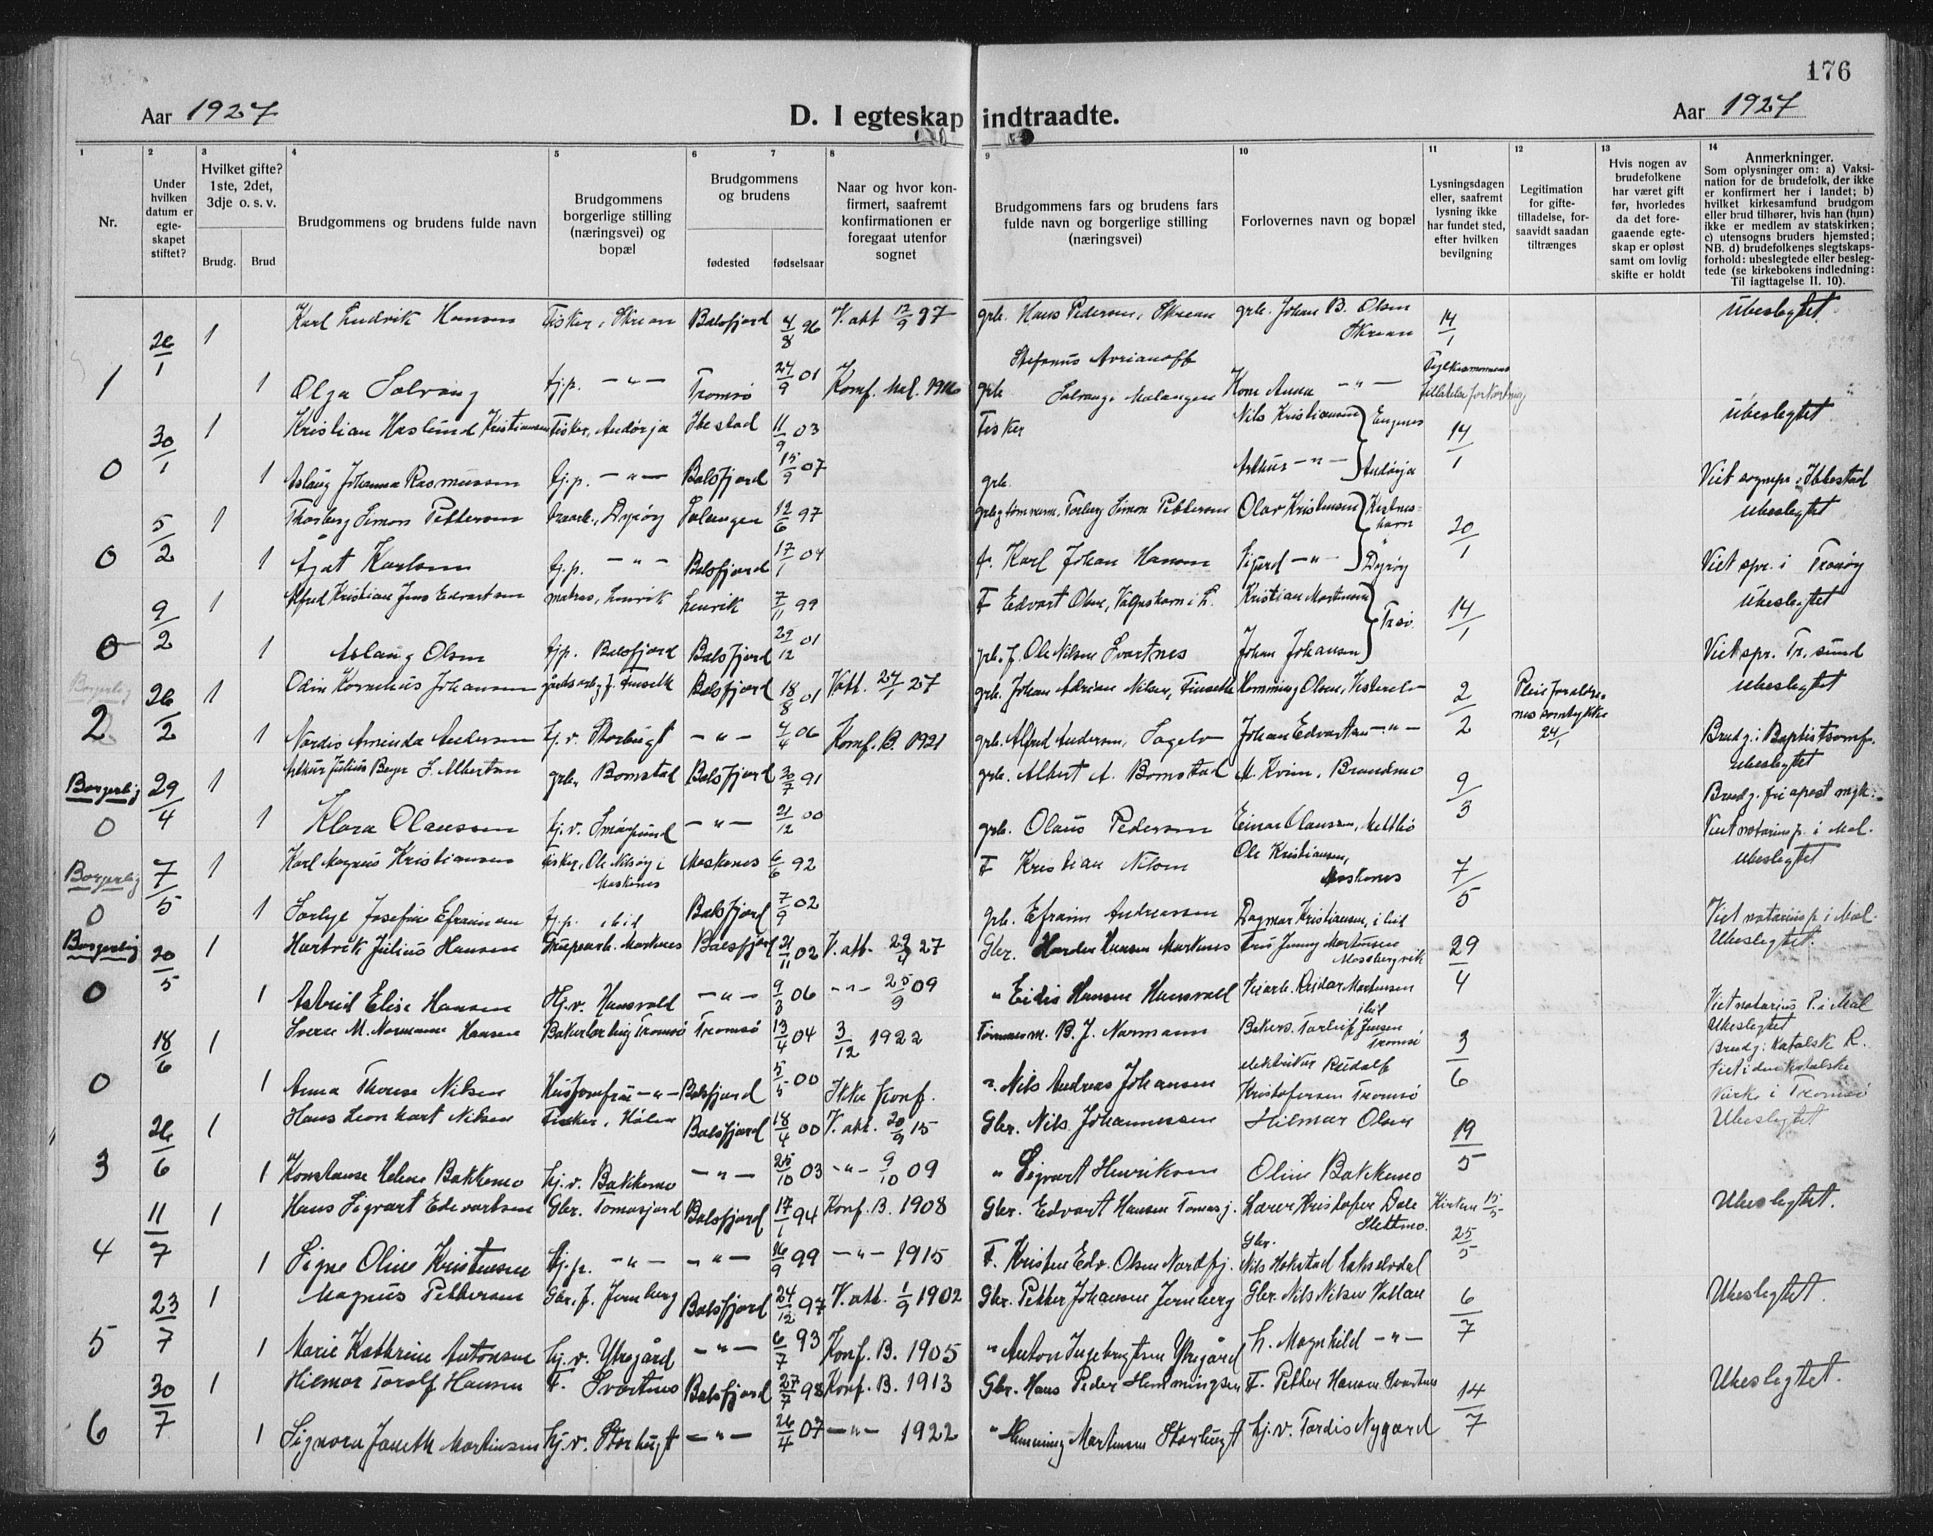 176
Aar 1927
D. I egteskap indtraadte.
Aar 1927
1 2 3 4 5 6 7 8 9 10 11 12 13 14
Nr.
Under hvilken datum er egte-skapet stiftet?
Hvilket gifte? 1ste, 2det, 3dje o. s. v.
Brudg. Brud
Brudgommens og brudens fulde navn
Brudgommens borgerlige stilling (næringsvei) og bopæl
Brudgommens og brudens
fødested fødselsaar
Naar og hvor kon-firmert, saafremt konfirmationen er foregaat utenfor sognet
Brudgommens fars og brudens fars fulde navn og borgerlige stilling (næringsvei)
Forlovernes navn og bopæl
Lysningsdagen eller, saafremt lysning ikke har fundet sted, efter hvilken bevilgning
Legitimation for gifte-tilladelse, for-saavidt saadan tiltrænges
Hvis nogen av brudefolkene har været gift før, hvorledes da det fore-gaaende egte-skap er opløst samt om lovlig skifte er holdt
Anmerkninger.
Som oplysninger om: a) Vaksi-nation for de brudefolk, der ikke er konfirmert her i landet; b) hvilket kirkesamfund brudgom eller brud tilhører, hvis han (hun) ikke er medlem av statskirken; c) utensogns bruders hjemsted; NB. d) brudefolkenes slegtskaps-forhold: ubeslegtede eller besleg-tede (se kirkebokens indledning: Til iagttagelse II. 10).
26/1 1 Karl Ludvik Hansen Fisker, Skrean Balsfjord 4/8 96 V. att 12/9 97 grb. Hans Pedersen, Skrean grb. Johan B. Olsen Skrean 14/1 Ubeslegtet.
1 1 Olga Solvang tj.p. —"— Tromsø 27/9 01 Konf. Mal. 1916 grb Stefanus Solvang, Malangen Kone Anna —"—
30/1 1 Kristian Haslund Kristiansen Fisker, Andørja Ibestad 11/9 03 Fisker Nils Kristiansen Engenes 14/1 Ubeslegtet
0 1 Aslaug Johanna Rasmussen tj.p. —"— Balsfjord 15/9 07 grb. Arthur —"— Andørja Viet sognepr. i Ibbestad
5/2 1 Thorberg Simon Pettersen Dyrøy Salangen 12/6 97 Torberg Simon Pettersen Olav Kristensen 20/1 Ubeslegtet
0 1 Ågot Karlsen tj.p. —"— Balsfjord 17/1 04 f. Karl Johan Hansen Sigurd —"— Dyrøy Viet spr. i Tranøy
9/2 1 Alfred Kristian Jens Edvartsen matros, Lenvik Lenvik 7/11 99 F Edvart Olsen, Kristian Mortensen Tr.sø. 14/1 Ubeslegtet
0 1 Aslaug Olsen tjp. Balsfjord Balsfjord 29/12 01 grb. f. Ole Nilsen Svartnes Johan Johansen Viet spr. Tr. sund
Borgerlig 26/2 1 Odin Kornelius Johansen gårdsarb. f. Balsfjord 18/8 01 Vatt. 27/1 27 grb. Johan Adrian Nilsen, Hemming Olsen, Vesterelv 2/2 Pleieforældrenes samtykke 24/1 Ubeslegtet
2 1 Nordis Aminda Andersen tj. v. Storbugt —"— 4/4 06 Konf. B. 1921 grb. Alfred Andersen, Sagelv Johan Edvartsen —"— Brudg. i Baptistsamf.
Borgerlig 29/4 1 Arthur Julius Beyer S. Albertsen grb. Bomstad Balsfjord 30/7 91 grb. Albert A. Bomstad M. Kvien, Brandmo 9/3 Ubeslegtet Brudg. fri apost mgh.
0 1 Klara Olaussen tj. v. Smørsund —"— 21/12 00 grb. Olaus Pedersen Einar Olaussen, Viet notariusp. i Mal.
Borgerlig 7/5 1 Karl Magnus Kristiansen Fisker, Moskenes Moskenes 6/6 92 F Kristian Nilsen Ole Kristiansen, Moskenes 7/5 Ubeslegtet
0 1 Josefine Efraimsen tj.p. ibid Balsfjord 7/9 02 grb. Efraim Andreassen Dagmar Kristiansen, ibid Viet notariusp i Mal.
Borgerlig 20/5 1 Hartvik Julius Hansen Markenes Balsfjord 21/11 02 V. att. 27 Gbr. Hansen Markenes Fru Jenny Mortensen 29/4 Ubeslegtet.
0 1 Astrid Elise Hansen Hj. v. Hansvold —"— 9/3 06 —"— 25/9 09 " Eidis Hansen Hansvold Reidar Mortensen ibid Viet notarius P. i Mal
18/6 1 Sverre M. Normann Hansen Bakerlærling Tromsø Tromsø 13/4 04 3/12 1922 Tømmerm. B. J. Normann Bakers. Torleif Jensen Tromsø 3/6 Ubeslegtet Brudg: Katolsk R.
0 1 Anna Therese Nilsen Husjomfru —"— Balsfjord 5/5 00 Ikke Konf. " Nils Andreas Johansen elektriker Rudolf Kristofersen Tromsø Viet i den Katolske Kirke i Tromsø
26/6 1 Hans Leonhart Nilsen Fisker, Balsfjord 18/4 00 V. att. 20/9 15 Gbr. Nils Johannessen Hilmar Olsen 19/5 Ubeslegtet
3 1 Konstanse Helene Bakkemo hj. v. Bakkemo —"— 25/10 03 —"— 9/10 09 " Sigvart Henriksen Oline Bakkemo
11/7 1 Hans Sigvart Edevartsen Gbr. Tomasjord Balsfjord 17/1 94 Konf. B. 1908 Gbr. Edvart Hansen Tomasj. Lærer Kristofer Dale Slettmo. Kirken 15/5 Ubeslegtet.
4 1 Signe Oline Kristensen tj.p. —"— —"— 16/9 99 —"— 1915 F. Kristen Edv. Olsen Nordfj. Gbr. Nils Hokstad Lakselvdal 25/5
23/7 1 Magnus Pettersen Gbr. f. Jernberg Balsfjord 24/12 97 V. att. 1/9 1902 Gbr. Petter Johansen Jernberg Gbr. Nils Nilsen Vollan 6/7 Ubeslegtet.
5 1 Marie Kathrine Antonsen hj. v. Ytregård —"— 6/7 93 Konf. B. 1905 " Anton Ingebrigtsen Ytregård L. Magnhild —"—
30/7 1 Hilmar Torolf Hansen F. Svartnes Balsfjord 27/7 98 Konf. B. 1913 Gbr. Hans Peder Hemmingsen F. Petter Hansen Svartnes 14/7 Ubeslegtet.
6 1 Signora Janeth Martinsen hj. v. Storbugt —"— 26/4 07 —"— 1922 " Henning Martinsen Storbugt hj. v. Tordis Nygård